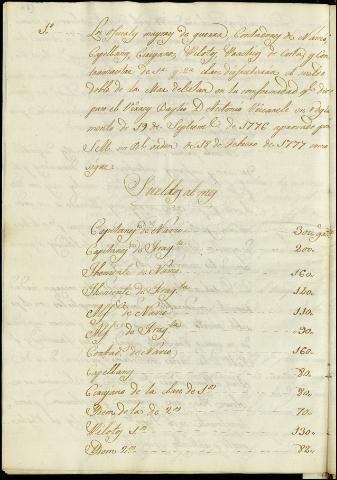 Los oficiales mayores de guerra, Contadores de Navio,
Capellany, Cirujanos, Pilotos, y Con
tramaestres de 1.ª y 2.ª clase disfrutaran el sueldo
doble de la Mar del Sur en la conformidad q.e dis
puso el Virrey Baylio D. Antonio en Regla
mento de 19 de Septiemb.e de 1776 aprovado por
S.M. en Rl. orden de 18 de Febrero de 1777 como
sigue.
Sueldos al mes
Capitanes de Navio 300
Capitanes de Frag.ta 200
Thenientes de Navio 160
Thenientes de Frag.ta 120
de Navio 110
de Frag.ta 90
Contad.s de Navio 160
Capellany 80
Cirujano de la clase de 1.os 80
Idem de la de 2.os 70
Pilotos 1.os 130
Idem 2.os 82